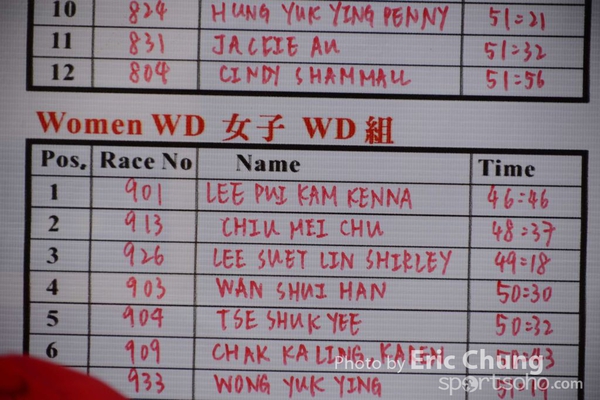 10 824 HUNG YUK YING PENNY 51:21
11 831 JACKIE AU 51:32
12 804 CINDY SHAMMALL 51:56
Women WD 女子 WD 組
Pos. Race No Name Time
1 901 LEE PUI KAM KENNA 46:46
2 913 CHIU MEI CHU 48:37
3 926 LEE SUET LIN SHIRLEY 49:18
4 903 WAN SHUI HAN 50:30
5 904 TSE SHUK YEE 50:32
6 909 CHAK KA LING KAREN 50:43
Photo by Eric Chung
933 WONG YUK YING
sportsoho.com